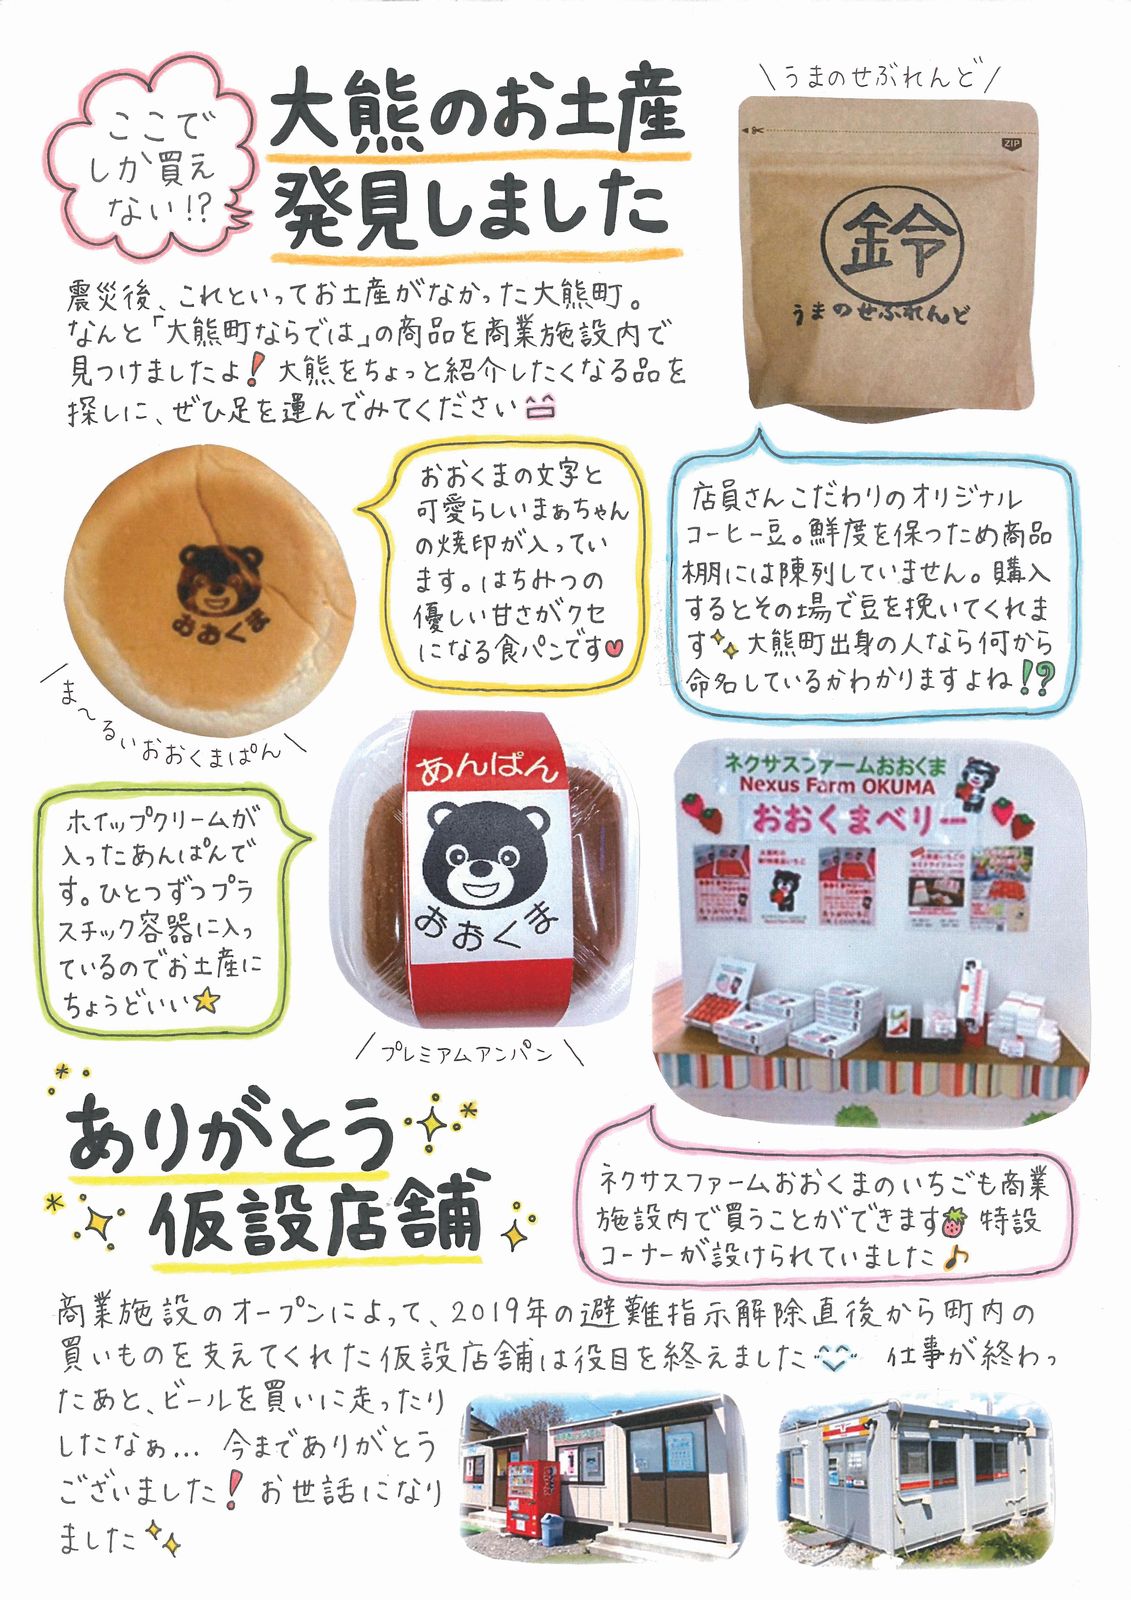 ここで
しか買え
ない!?
大熊のお土産
発見しました
\うまのせぶれんど/
ZIP
鈴
うまのせぶれんど
震災後、これといってお土産がなかった大熊町。
なんと「大熊町ならでは」の商品を商業施設内で
見つけましたよ!大熊をちょっと紹介したくなる品を
探しに、ぜひ足を運んでみてください
おおくま
\ま〜るいおおくまぱん\
おおくまの文字と
可愛らしいまぁちゃん
の焼印が入ってい
ます。はちみつの
優しい甘さがクセ
になる食パンです
店員さんこだわりのオリジナル
コーヒー豆。鮮度を保つため商品
棚には陳列していません。購入
するとその場で豆を挽いてくれま
す 大熊町出身の人なら何から
命名しているかわかりますよね!?
ホイップクリームが
入ったあんぱんで
す。ひとつずつプラ
スチック容器に入っ
ているのでお土産に
ちょうどいい
あんぱん
おおくま
/プレミアムアンパン\
ネクサスファームおおくま
Nexus Farm OKUMA
おおくまベリー
ネクサスファームおおくまのいちごも商業
施設内で買うことができます 特設
コーナーが設けられていました♪
ありがとう
仮設店舗
商業施設のオープンによって、2019年の避難指示解除直後から町内の
買いものを支えてくれた仮設店舗は役目を終えました 仕事が終わっ
たあと、ビールを買いに走ったり
したなぁ... 今までありがとう
ございました! お世話になり
ました